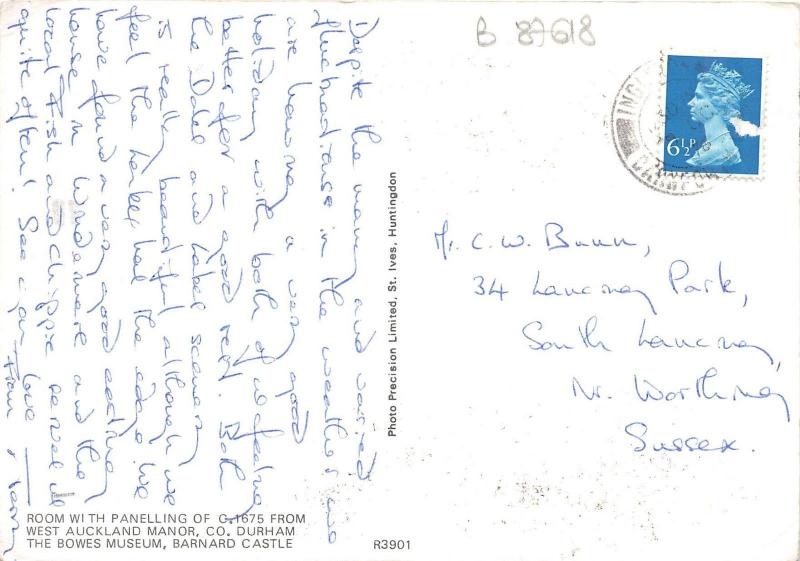 Despite the many and varied
fluctuations in the weather we
are having a very good
holiday with both of us feeling
better for a good rest. Both
the Dales and Lake scenery
is really beautiful although we
feel the Lakes had the edge. We
have found a very good eating
house in Windermere and the
local Fish and Chippie serves us
quite often! See you love
From
B 87618
6½P
Mr. C. W. Bunn,
34 Lancing Park,
South Lancing,
Nr. Worthing
Sussex.
Photo Precision Limited, St. Ives, Huntingdon
ROOM WITH PANELLING OF C.1675 FROM
WEST AUCKLAND MANOR, CO. DURHAM
THE BOWES MUSEUM, BARNARD CASTLE
R3901